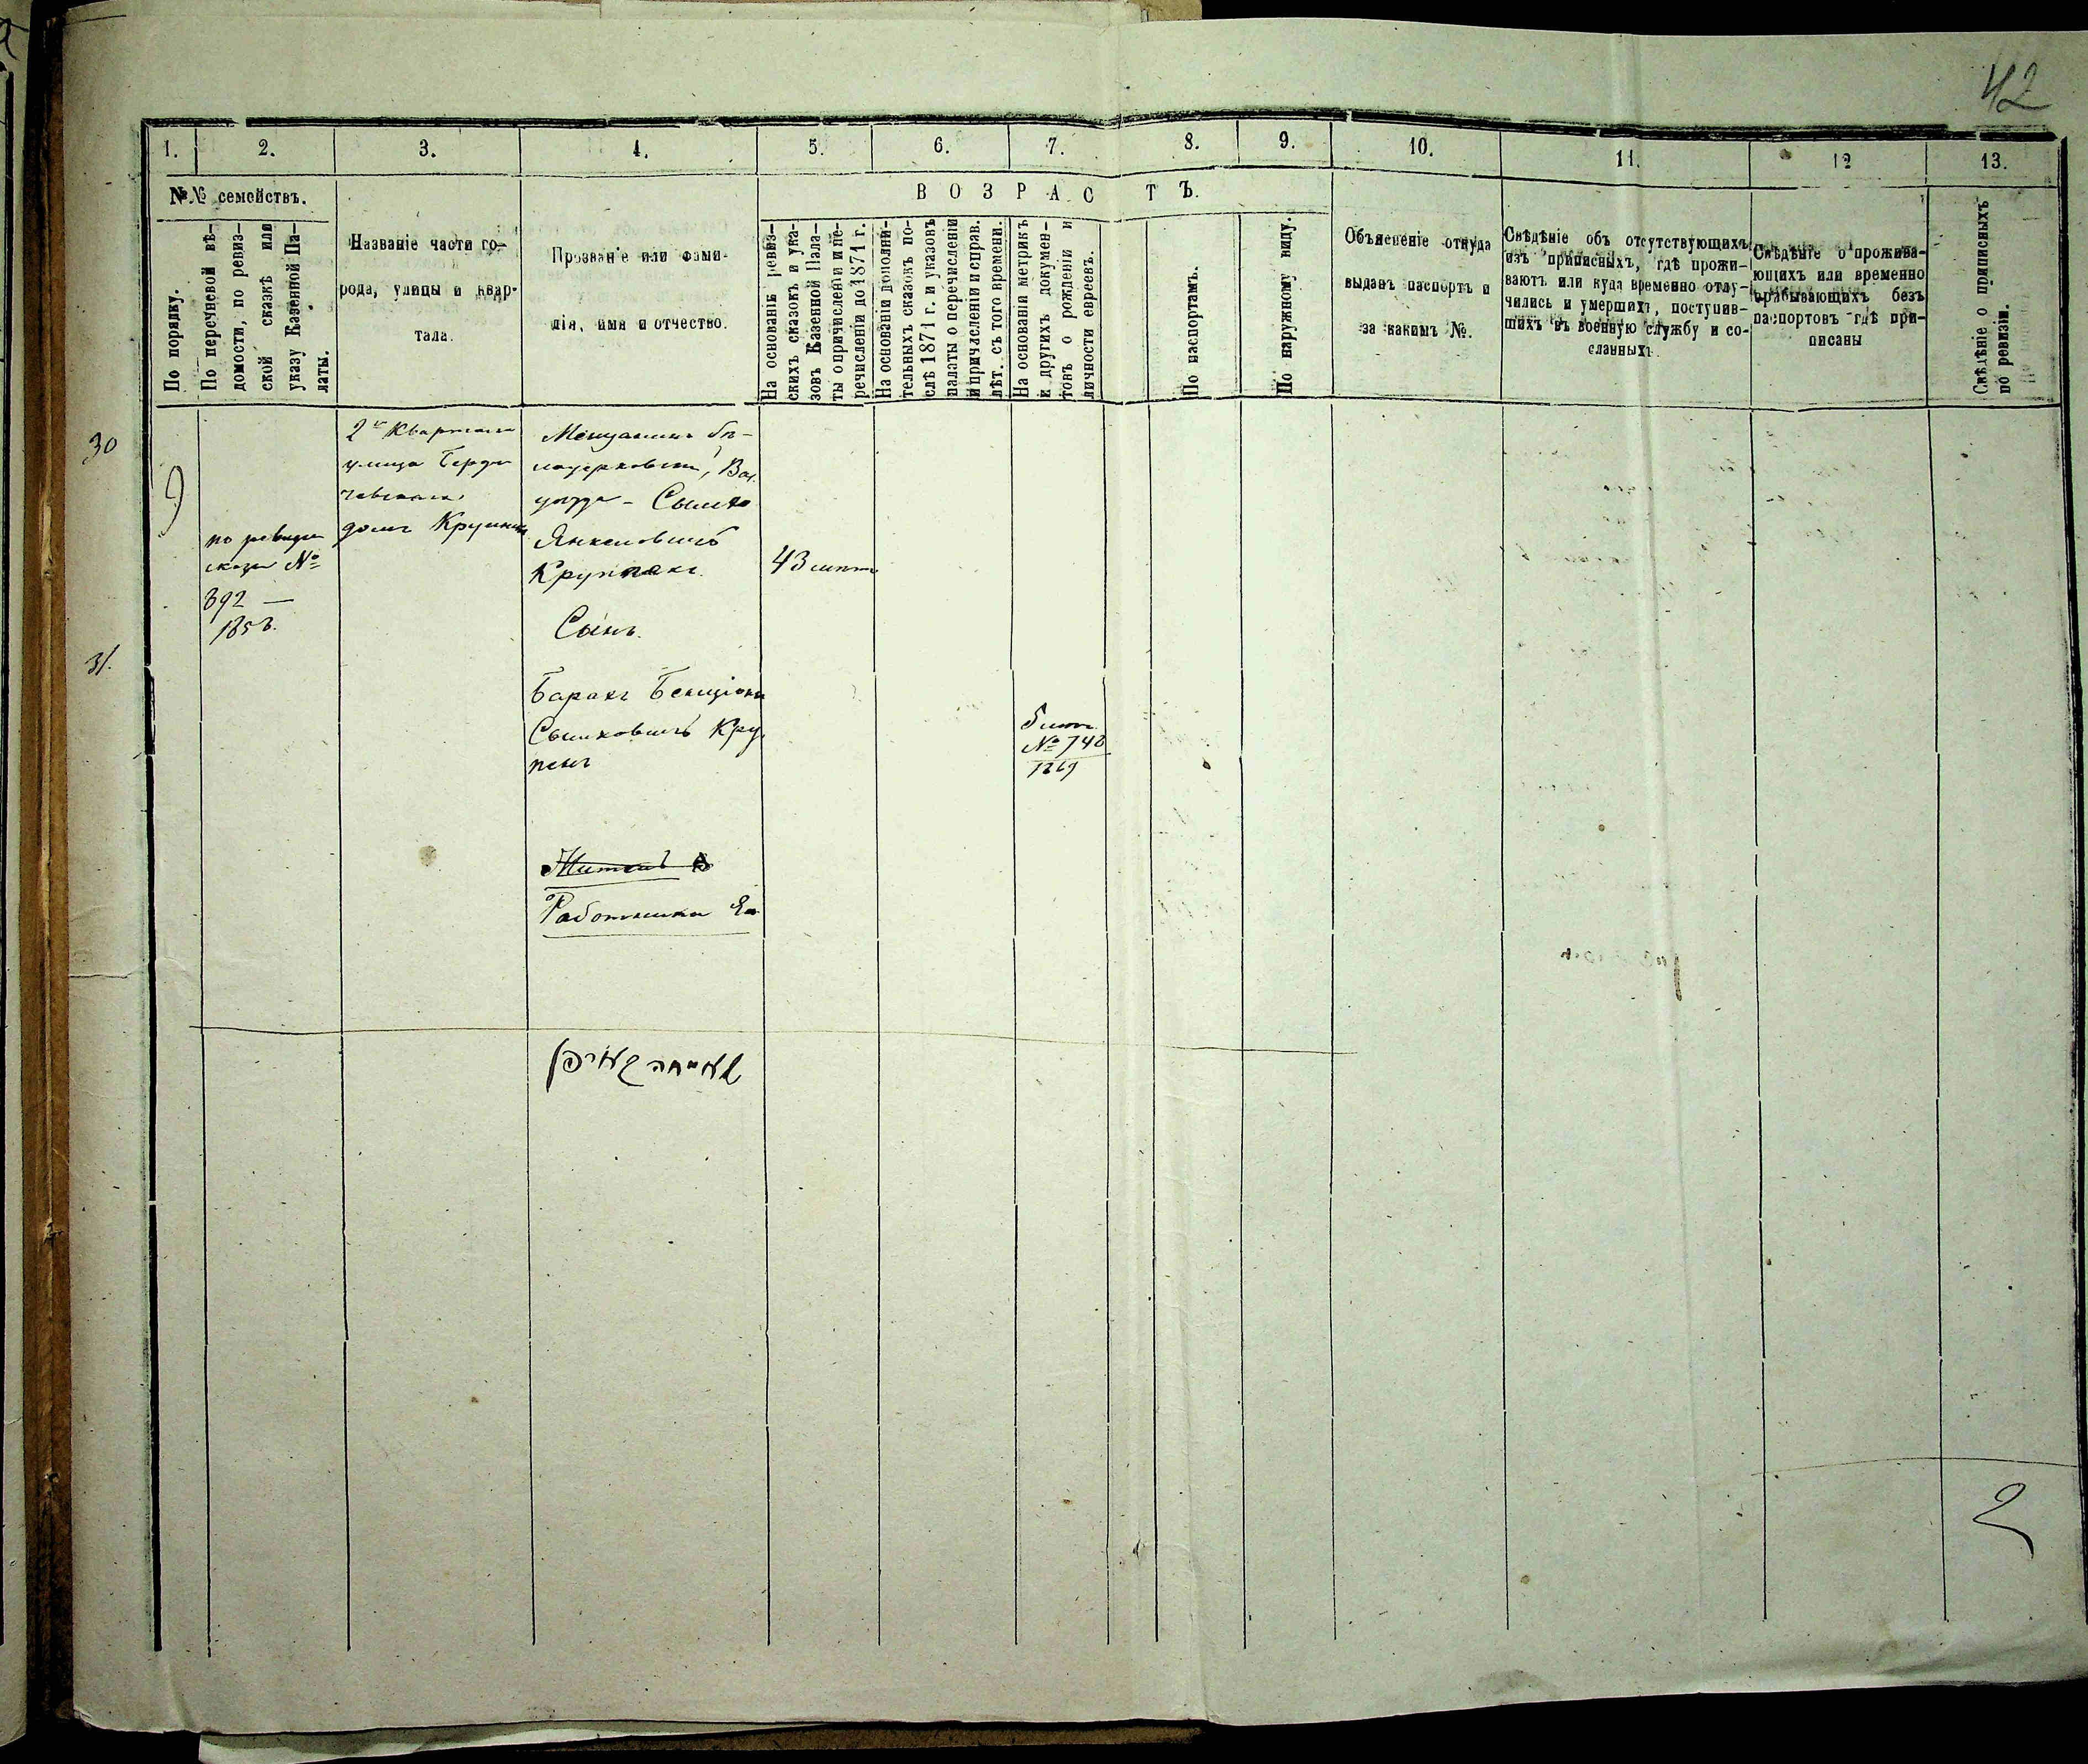 42
1. 2. 3. 4. 5. 6. 7. 8. 9. 10. 11. 12 13.
№№ семействъ.
По порядку.
По перечневой вѣ-
домости, по ревиз-
ской сказкѣ или
указу Казенной Па-
латы.
Названіе части го-
рода, улицы и квар-
тала.
Прозваніе или фами-
лія, имя и отчество.
ВОЗРАСТЪ.
На основаніи ревиз-
скихъ сказокъ и ука-
зовъ Казенной Пала-
ты о причисленіи и пе-
речисленіи до 1871 г.
На основаніи дополни-
тельныхъ сказокъ по-
слѣ 1871 г. и указовъ
палаты о перечисленіи
и причисленіи и справ.
лѣт. съ того времени.
На основаніи метрикъ
и другихъ докумен-
товъ о рожденіи и
личности евреевъ.
По паспортамъ.
По наружному виду.
Объясненіе откуда
выданъ паспортъ и
за какимъ №.
Свѣдѣніе объ отсутствующихъ
изъ приписныхъ, гдѣ прожи-
ваютъ или куда временно отлу-
чились и умершихъ, поступив-
шихъ въ военную службу и со-
сланныхъ.
Свѣдѣніе о прожива-
ющихъ или временно
пребывающихъ безъ
паспортовъ гдѣ при-
писаны
Свѣдѣніе о приписныхъ
по ревизіи.
30
31.
9
по ревизс
сказк №
892 —
1858.
2й Кварталъ
улица Берди
чевская
домъ Крупника
Мещанинъ бѣ-
лоцерковскій, Вас.
уѣзда - Сымхо
Янкеловичъ
Крупникъ.
43 лѣтъ
Сынъ.
Барахъ Бенціонъ
Сымховичъ Кру
5 лѣтъ
№ 748
1869
Работники Его
2